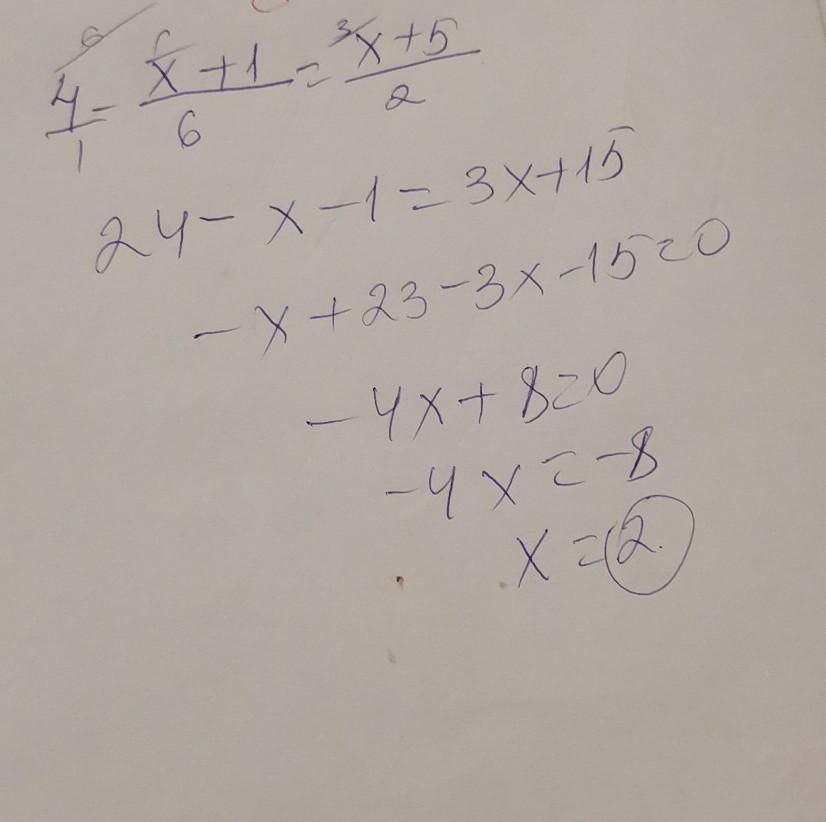 4/1 - (x+1)/6 = (x+5)/2
24 - x - 1 = 3x + 15
- x + 23 - 3x - 15 = 0
- 4x + 8 = 0
- 4x = - 8
x = 2